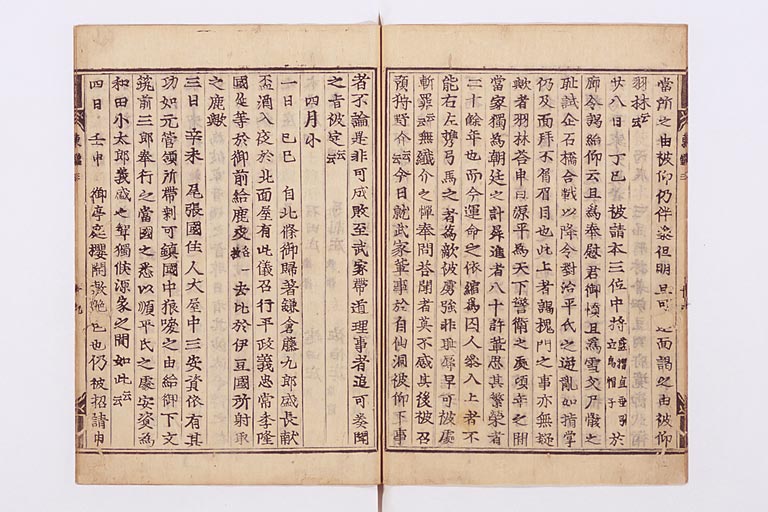 當所之由被仰仍伴參但明旦可 面謁之由被仰
羽林云云
廿八日 丁巳 被請本三位中將藍摺直垂引立烏帽子於
廊令謁給仰云且為奉慰君御憤且為雪父尸骸之
耻試企石橋合戰以降令對治平氏之逆亂如指掌
仍及面拜不屑眉目也此上者謁槐門之事亦無疑
歟者羽林答申曰源平為天下警衛之處頃年之間
當家獨為朝廷之計昇進者八十許輩思其繁榮者
二十餘年也而今運命之依縮為囚人參入上者不
能右左携弓馬之者為敵被虜強非耻辱早可被處
斬罪云云無纖介之憚奉問答聞者莫不感其後被召
預狩野介云云今日就武家輩事於自仙洞被仰下事
者不論是非可成敗至武家帶道理事者追可奏聞
之旨被定云云
四月小
一日 己巳 自北條御歸著鎌倉藤九郎盛長献
盃酒入夜於北面屋有此儀召行平政義忠常李隆
國是等於御前給鹿皮 一去比於伊豆國所射取
之鹿歟
三日 辛未 尾張國住人大屋中三安資依有其
功如元管領所帶剰可鎮國中狼唳之由給御下文
筑前三郎奉行之當國之悉以順平氏之處安資為
和田小太郎義盛之聟獨候源家之間如此云云
四日 壬申 御亭庭櫻開敷艶 也仍被招請中